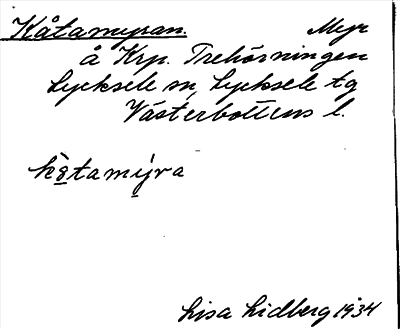 Kåtamyran. Myr
å Krp. Trehörningen
Lycksele sn, Lycksele tg
Västerbottens l.
kå̀tamýra
Lisa Lidberg 1934